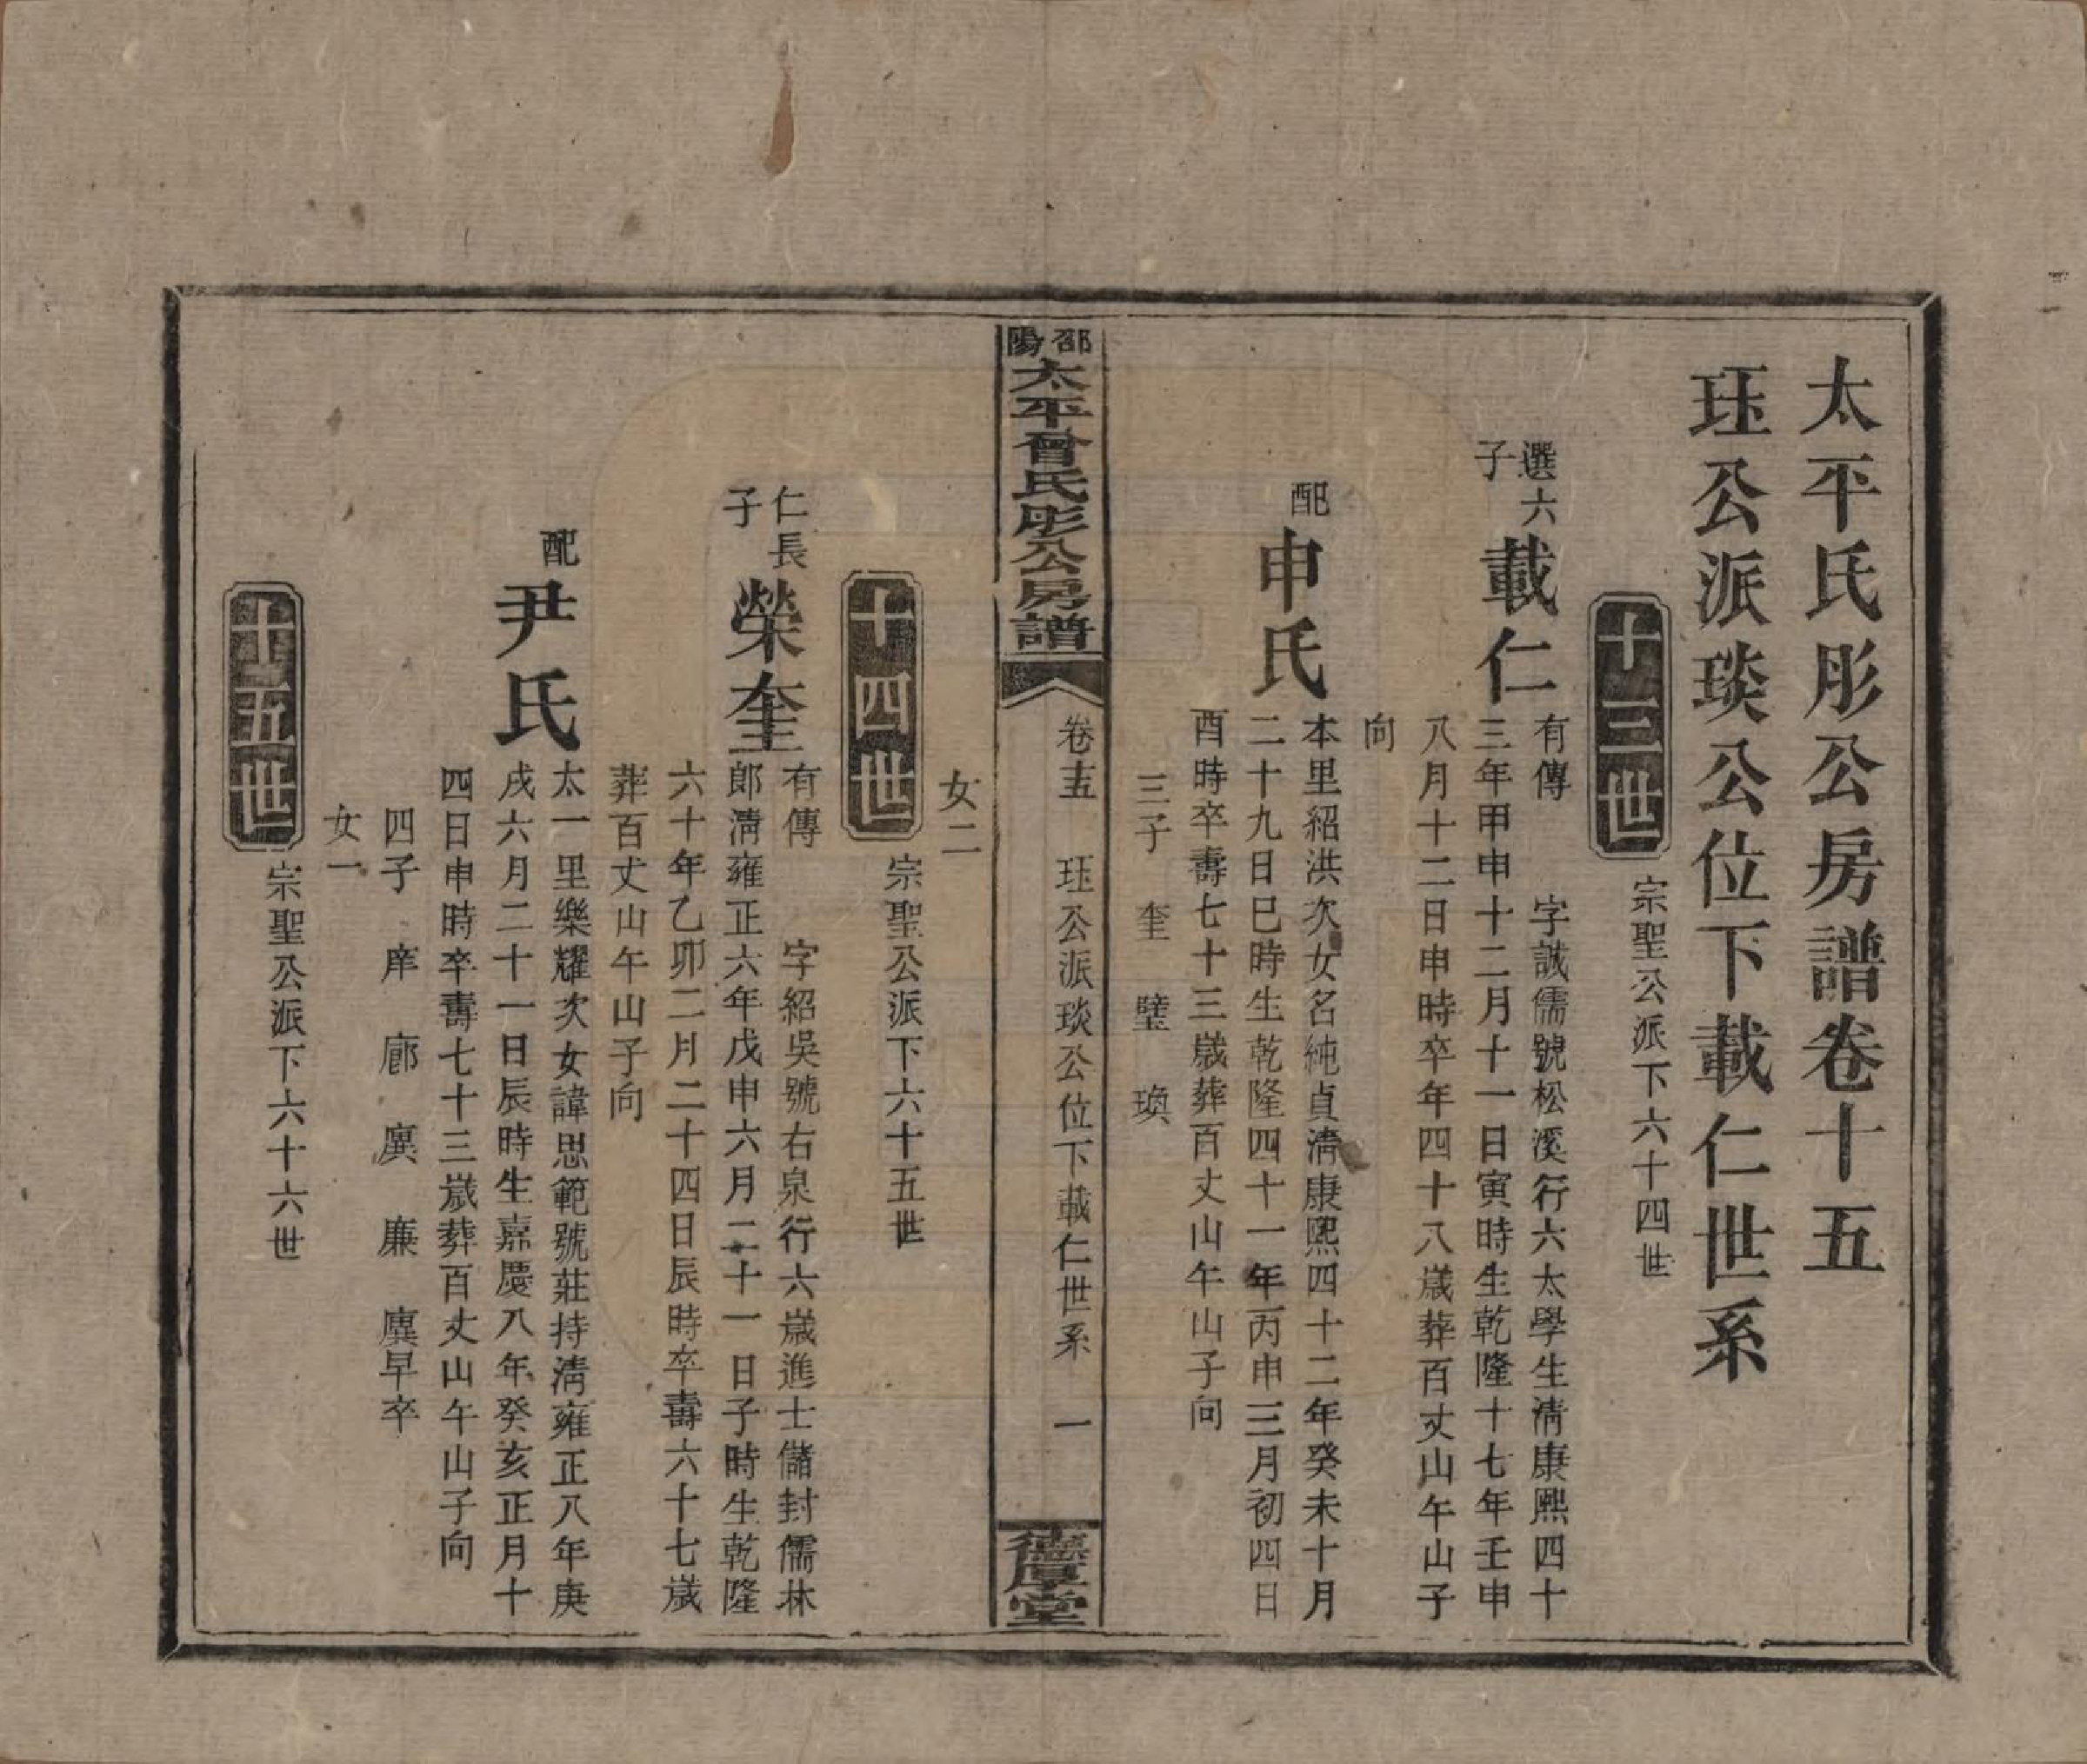 太平氏彤公房譜卷十五
珏公派琰公位下載仁世系
十三世
宗聖公派下六十四世
選六
子
載仁
有傳 字誠儒號松溪行六太學生淸康熙四十
三年甲申十二月十一日寅時生乾隆十七年壬申
八月十二日申時卒年四十八歲葬百丈山午山子
向
配
申氏
本里紹洪次女名純貞淸康熙四十二年癸未十月
二十九日巳時生乾隆四十一年丙申三月初四日
酉時卒壽七十三歲葬百丈山午山子向
三子 奎 璧 瑍
邵陽
太平曾氏彤公房譜
卷十五 珏公派琰公位下載仁世系 一
德厚堂
女二
十四世
宗聖公派下六十五世
仁長
子
榮奎
有傳 字紹吳號右泉行六歲進士儲封儒林
郎淸雍正六年戊申六月二十一日子時生乾隆
六十年乙卯二月二十四日辰時卒壽六十七歲
葬百丈山午山子向
配
尹氏
太一里樂耀次女諱思範號莊持淸雍正八年庚
戌六月二十一日辰時生嘉慶八年癸亥正月十
四日申時卒壽七十三歲葬百丈山午山子向
四子 庠 廊 廙 廉 廙早卒
女一
十五世
宗聖公派下六十六世